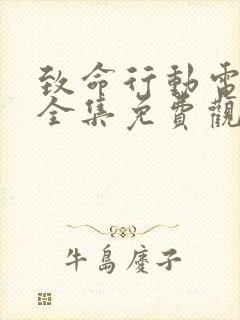 致命行動電
全集免費觀
牛島慶子